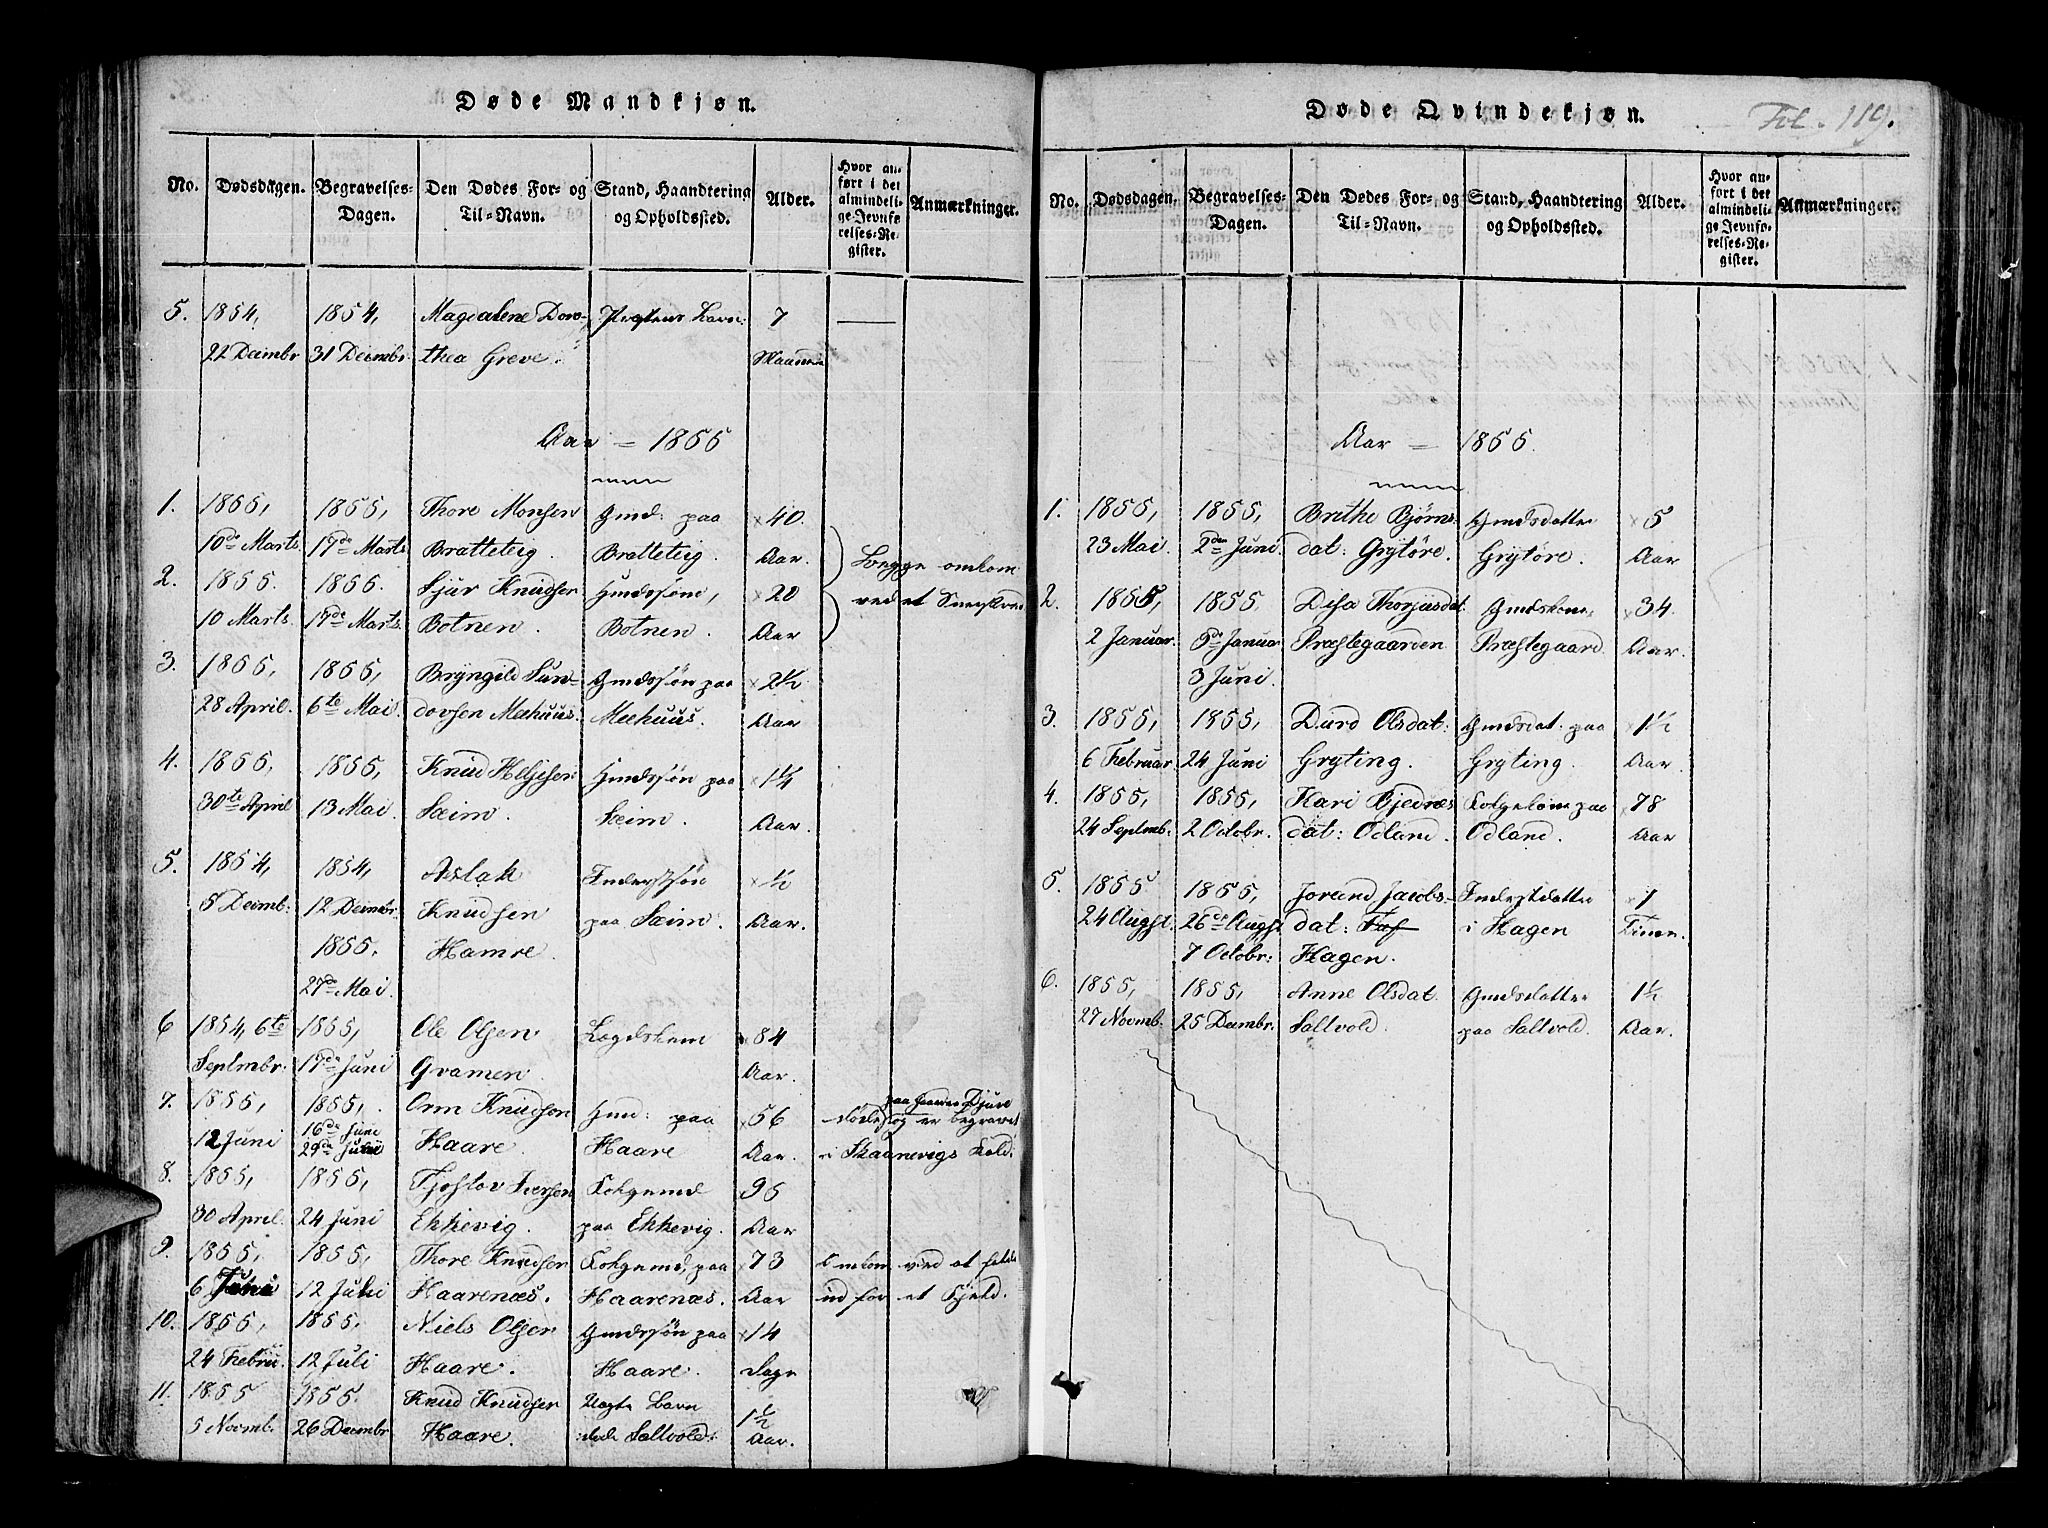 Døde Mandkjøn.
No. Dødsdagen. Begravelses-Dagen. Den Dødes For- og Til-Navn. Stand, Haandtering og Opholdssted. Alder. Hvor anført i det almindelige Jevnførelses-Register. Anmærkninger.
5. 1854, 1854, Magdalene Doro- Præstens Barn 7
22 Decmbr 31 Decmbr. thea Greve. Maaneder
Aar = 1855
1. 1855, 1855, Thore Monsen Gmd: paa ×40.
10de Marts. 17de Marts. Bratteteig. Bratteteig. Aar.
2. 1855. 1855. Sjur Knudsen Gmdssøn, ×20 Begge omkom
10 Marts. 17de Marts. Botnen. Botnen. Aar ved et
3. 1855, 1855, Bryngild Sun- Gmdssøn paa ×2½
28 April. 6te Mai dovsen Meehuus. Meehuus. Aar
4. 1855, 1855, Knud Helgesen Gmdssøn paa ×1¼
30te April 13 Mai. Sæim. Sæim. Aar.
5. 1854, 1854, Aslak Inderstsøn ×½
5 Decmb: 12 Decmbr. Knudsen paa Sæim. Aar.
1855. Hamre.
27de Mai.
6 1854, 6te 1855, Ole Olsen Lægdslem ×84
Septmbr: 17de Juni Gramen. Aar.
7. 1855, 1855, Orm Knudsen Gmd: paa ×56 døde paa Gaarden Djuve og er begravet
12 Juni 16de Juni 29de Juni Haare. Haare Aar. i Skaanevigs Sold.
8. 1855, 1855, Tjøstov Iversen Folgemd 95
30 April. 24 Juni Ekkevig. paa Ekkevig. Aar
9. 1855, 1855, Thore Knudsen Folgemd, paa ×73 Omkom ved at falde
6 12 Juli Haarenæs. Haarenæs. Aar ud for et Fjeld.
10. 1855, 1855, Niels Olsen Gmdssøn paa ×14
24 Februi. 12 Juli Haare. Haare. Dage
11. 1855 1855. Knud Knudsen Uægte Barn 1½
5 Novmb. 26 Decmbr Haare. Saltvold. Aar.
Døde Qvindekjøn. Fol. 119.
No. Dødsdagen. Begravelses-Dagen. Den Dødes For- og Til-Navn. Stand, Haandtering og Opholdssted. Alder. Hvor anført i det almindelige Jevnførelses-Register. Anmærkninger.
Aar = 1855.
1. 1855, 1855, Brithe Bjørns- Gmdsdatter ×5
23 Mai. 2den Juni. dat: Grytøre. Grytøre. Aar
2. 1855, 1855. Disa Thorjusdat: Gmdskone, ×34.
2 Januar. 5de Januar Præstegaarden Præstegaard. Aar.
3 Juni.
3. 1855, 1855, Durd Olsdat: Gmdsdat. paa ×1½
6 Februar. 24 Juni Gryting. Gryting. Aar.
4. 1855, 1855, Kari Gjednæs Folgekone paa ×78
24 Septmb. 2 Octobr. dat: Odland. Odland. Aar
5. 1855 1855, Jorand Jacobs- Inderstdatter ×1
24 Augst. 26de Augst dat: Hagen. i Hagen Timer.
7 Octobr:
6. 1855, 1855, Anne Olsdat. Gmdsdatter 1½
27 Novmb. 25 Decmbr. Saltvold. paa Saltvold. Aar.